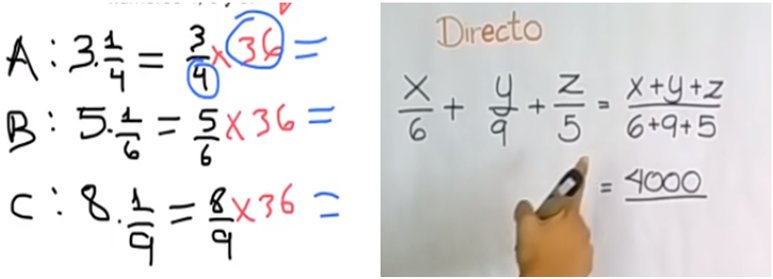 A : 3.1/4 = 3/4 x 36 =
B : 5.1/6 = 5/6 x 36 =
C : 8.1/9 = 8/9 x 36 =
Directo
x/6 + y/9 + z/5 = x+y+z/6+9+5
= 4000